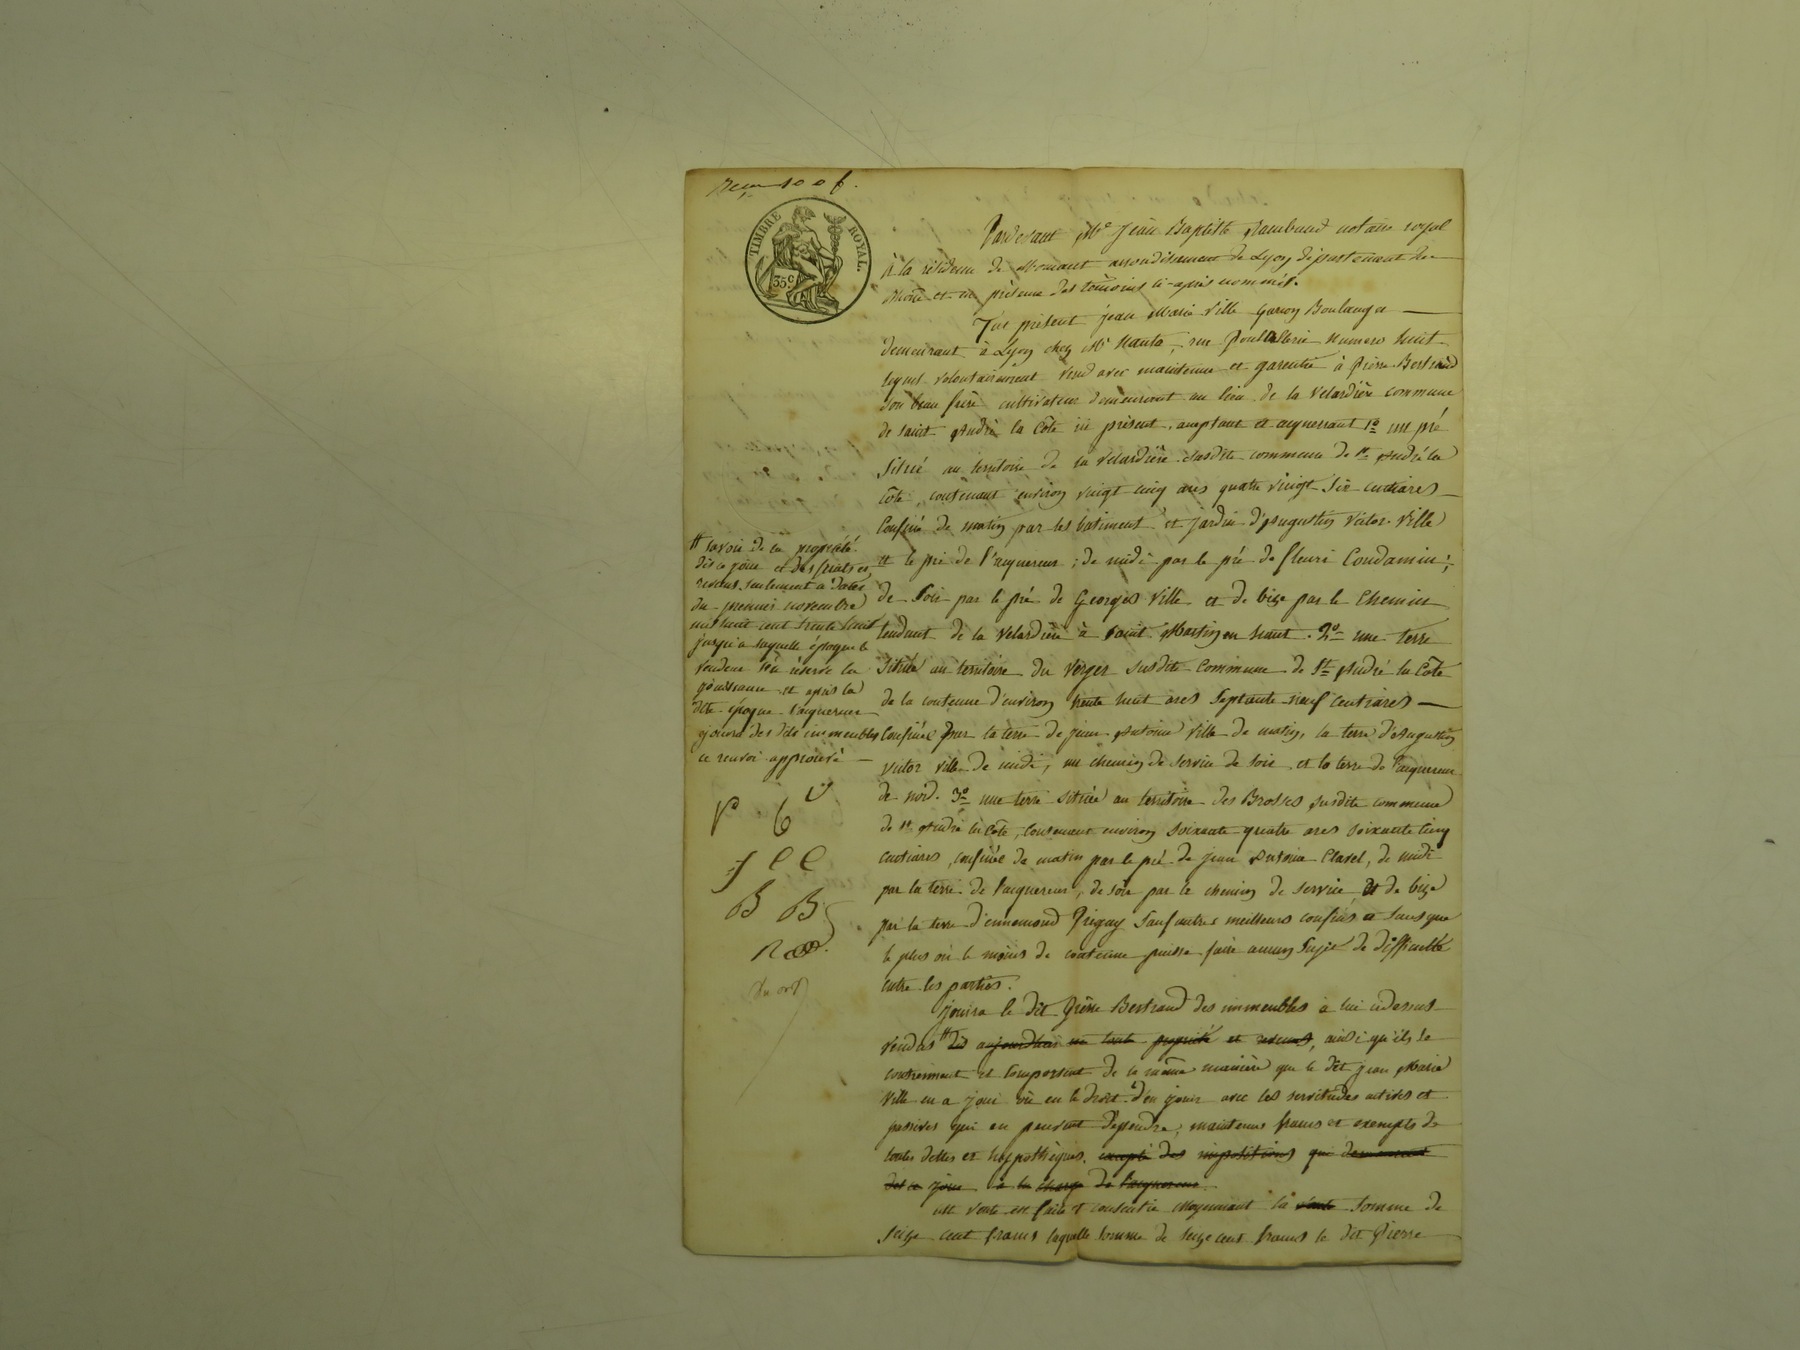 TIMBRE ROYAL.
35 c
Pardevant Me Jean Baptiste Rambaud notaire royal
à la résidence de Mornant arrondissement de Lyon département du
Rhône et en présence des témoins ci-après nommés.
Fut présent jean Marie Ville garçon Boulanger
demeurant à Lyon chez Mr rue numero huit
lequel volontairement vend avec maintenue et garentie à Pierre Bertrand
son beau frère cultivateur demeurant au lieu de la Velardière commune
de saint André la Côte ici présent, acceptant et acquerrant 1o un pré
situé au territoire de la Velardière susdite commune de St André la
côte, contenant environ vingt cinq ares quatre vingt six centiares
Confiné de matin par les batiment et jardin d'Augustin Victor Ville
et le pré de l'acquereur ; de midi par le pré de fleuri Condamin ;
de soir par le pré de Georges Ville et de bize par le Chemin
tendant de la Velardière à saint Martin en haut. 2o une terre
située au territoire du Verger susdite Commune de St André la Côte
de la contenue d'environ trente huit ares septante neuf centiares
Confinée par la terre de jean Antoine Ville de matin, la terre d'Augustin
Victor Ville de midi, un chemin de service de soir et la terre de l'acquereur
de nord. 3o une terre située au territoire des Brosses susdite commune
de St André la Côte, contenant environ soixante quatre ares soixante cinq
centiares, confinée de matin par le pré de jean Antoine Clavel, de midi
par la terre de l'acquereur, de soir par le chemin de service et de bize
par la terre d'ennemond sauf autres meilleurs confins et sans que
le plus ou le moins de contenue puisse faire aucun sujet de difficulté
entre les parties.
jouira le dit Pierre Bertrand des immeubles à lui cidessus
vendus # dès aujourdhui en toute propriété et revenus, ainsi qu'ils se
contiennent et comportent de la même manière que le dit jean Marie
Ville en a joui ou eu le droit d'en jouir avec les servitudes actives et
passives qui en peuvent dependre, maintenus francs et exempts de
toutes dettes et hypothèques, excepté des impositions qui demeurent
dès ce jour à la charge de l'acquereur
vente est faite et consentie moyennant la vente somme de
seize cent francs laquelle somme de seize cent francs le dit Pierre
# savoir de la propriété
dès ce jour et des fruits et
revenus seulement à dater
du premier novembre
mil huit cent trente huit
jusqu'à laquelle époque le
vendeur s'en réserve la
jouissance et après la
dite époque l'acquereur
jouira des dits immeubles
ce renvoi approuvé
B B